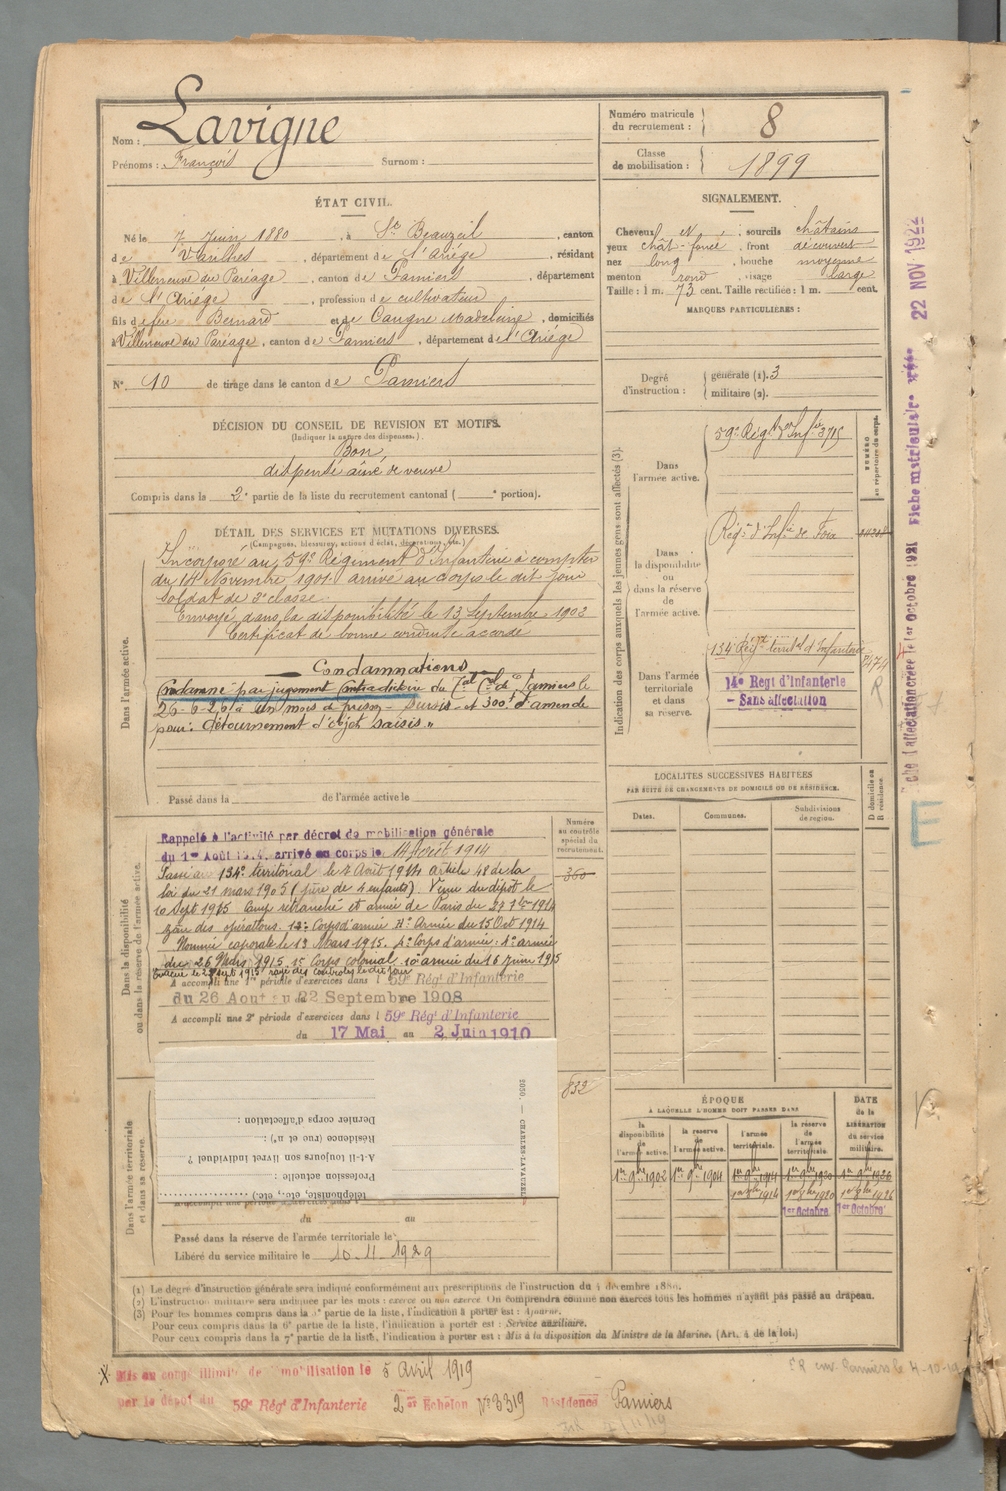 Nom : Lavigne
Prénoms : François Surnom :
Numéro matricule du recrutement : 8
Classe de mobilisation : 1899
ÉTAT CIVIL.
Né le 7 Juin 1880, à St Beauzeil, canton
de Varilhes, département de l'Ariège, résidant
à Villeneuve du Paréage, canton de Pamiers, département
de l'Ariège, profession de cultivateur
fils de feu Bernard et de Caugne Madeleine, domiciliés
à Villeneuve du Paréage, canton de Pamiers, département de l'Ariège
N° 10 de tirage dans le canton de Pamiers
SIGNALEMENT.
Cheveux et sourcils châtains
yeux chât-foncé, front découvert
nez long, bouche moyenne
menton rond, visage large
Taille : 1 m. 73 cent. Taille rectifiée : 1 m. cent.
MARQUES PARTICULIÈRES :
Degré d'instruction : générale (1). 3
militaire (2).
DÉCISION DU CONSEIL DE REVISION ET MOTIFS.
(Indiquer la nature des dispenses.)
Bon,
dispensé aîné de veuve
Compris dans la 2e partie de la liste du recrutement cantonal ( e portion).
DÉTAIL DES SERVICES ET MUTATIONS DIVERSES.
(Campagnes, blessures, actions d'éclat, décorations, etc.)
Dans l'armée active.
Incorporé au 59e Régiment d'Infanterie à compter
du 14 Novembre 1901. arrivé au corps le dit jour
soldat de 2e classe.
Envoyé dans la disponibilité le 13 Septembre 1902
Certificat de bonne conduite accordé
Condamnations
Condamné par jugement contradictoire du Pamiers le
26-6-20 à un mois de prison - sursis - et 300f d'amende
pour : détournement d'objet saisis "
Passé dans la de l'armée active le
Indication des corps auxquels les jeunes gens sont affectés (3).
NUMÉRO au répertoire du corps.
Dans l'armée active.
59e Régt d'Infie 3715
Dans la disponibilité ou dans la réserve de l'armée active.
Régt d'Infie de Foix
Dans l'armée territoriale et dans sa réserve.
134e Régt territl d'Infanterie
14e Regt d'Infanterie
- Sans affectation
LOCALITÉS SUCCESSIVES HABITÉES
PAR SUITE DE CHANGEMENTS DE DOMICILE OU DE RÉSIDENCE.
Dates. Communes. Subdivisions de région. D domicile ou R résidence.
Dans la disponibilité ou dans la réserve de l'armée active.
Numéro au contrôle spécial du recrutement.
360
Rappelé à l'activité par décret de mobilisation générale
du 1er Août 1914, arrivé au corps le 14 Août 1914
Passé au 134e territorial le 7 Août 1914 article 48 de la
loi du 21 mars 1905 (père de 4 enfants). Venu du dépôt le
10 Sept 1915 Camp retranché et armée de Paris du
zone des opérations. Corps d'armée Armée du 15 Oct 1914
Nommé caporal le 12 Mars 1915. 4e Corps d'armée :
du 26 Mars 1915 1er Corps colonial 10e armée du 16 Juin 1915
rayé des contrôles le dit jour
A accompli une 1re période d'exercices dans l 59e Régt d'Infanterie
du 26 Aout au 22 Septembre 1908
A accompli une 2e période d'exercices dans l 59e Régt d'Infanterie
du 17 Mai au 2 Juin 1910
Dans l'armée territoriale et dans sa réserve.
832
2030. — CHARLES-LAVAUZEL
Dernier corps d'affectation :
Résidence (rue et n°) :
A-t-il toujours son livret individuel ?
Profession actuelle :
téléphoniste, etc., etc.)
du au
Passé dans la réserve de l'armée territoriale le
Libéré du service militaire le 10-11-1929
ÉPOQUE
À LAQUELLE L'HOMME DOIT PASSER DANS
la disponibilité de l'armée active. la réserve de l'armée active. l'armée territoriale. la réserve de l'armée territoriale.
DATE de la LIBÉRATION du service militaire.
1er 9bre 1902 1er 9bre 1904 1er 9bre 1914 1er 9bre 1920 1er 9bre 1926
1er 8bre 1914 1er 8bre 1920 1er 8bre 1926
1er Octobre 1er Octobre
(1) Le degré d'instruction générale sera indiqué conformément aux prescriptions de l'instruction du 4 décembre 1889.
(2) L'instruction militaire sera indiquée par les mots : exercé ou non exercé. On comprendra comme non exercés tous les hommes n'ayant pas passé au drapeau.
(3) Pour les hommes compris dans la 5e partie de la liste, l'indication à porter est : Ajourné.
Pour ceux compris dans la 6e partie de la liste, l'indication à porter est : Service auxiliaire.
Pour ceux compris dans la 7e partie de la liste, l'indication à porter est : Mis à la disposition du Ministre de la Marine. (Art. 4 de la loi.)
X Mis en congé illimité de démobilisation le 5 Avril 1919
par le dépôt du 59e Régt d'Infanterie 2me Echelon N° 3319 Résidence Pamiers
d'affectation créée le 1er Octobre 1921 Fiche matriculaire 22 NOV 1922
E